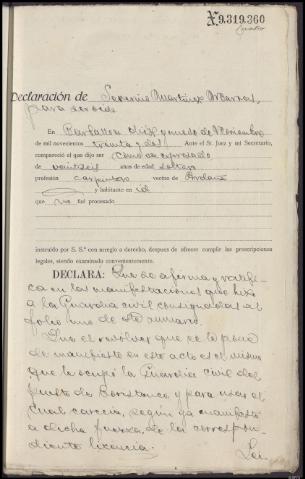 X.9.319.360
Declaración de Martínez
para
En diez y nueve de Noviembre
de mil novecientos treinta y dos. Ante el Sr. Juez y mi Secretario,
compareció el que dijo ser como se
de años de edad, soltero
profesión carpintero vecino de
y habitante en id
que no fué procesado
instruido por S. S.ª con arreglo a derecho, después de ofrecer cumplir las prescripciones
legales, siendo examinado convenientemente.
DECLARA: Que se afirma y ratifi-
ca en las manifestaciones que hizo
a la Guardia civil consignadas al
folio uno de este sumario.
Que el revolver que se le pone
de manifiesto en este acto es el mismo
que le ocupó la Guardia civil del
puesto de y para usar el
cual carecía, según ya manifestó
a dicha fuerza, de la correspon-
diente licencia.